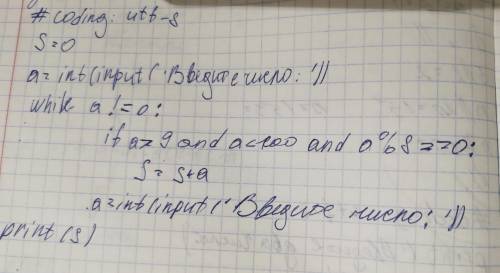 # coding: utf-8
S=0
a=int(input('Введите число:'))
while a!=0:
if a>9 and a<100 and a%8==0:
S=S+a
a=int(input('Введите число:'))
print(S)